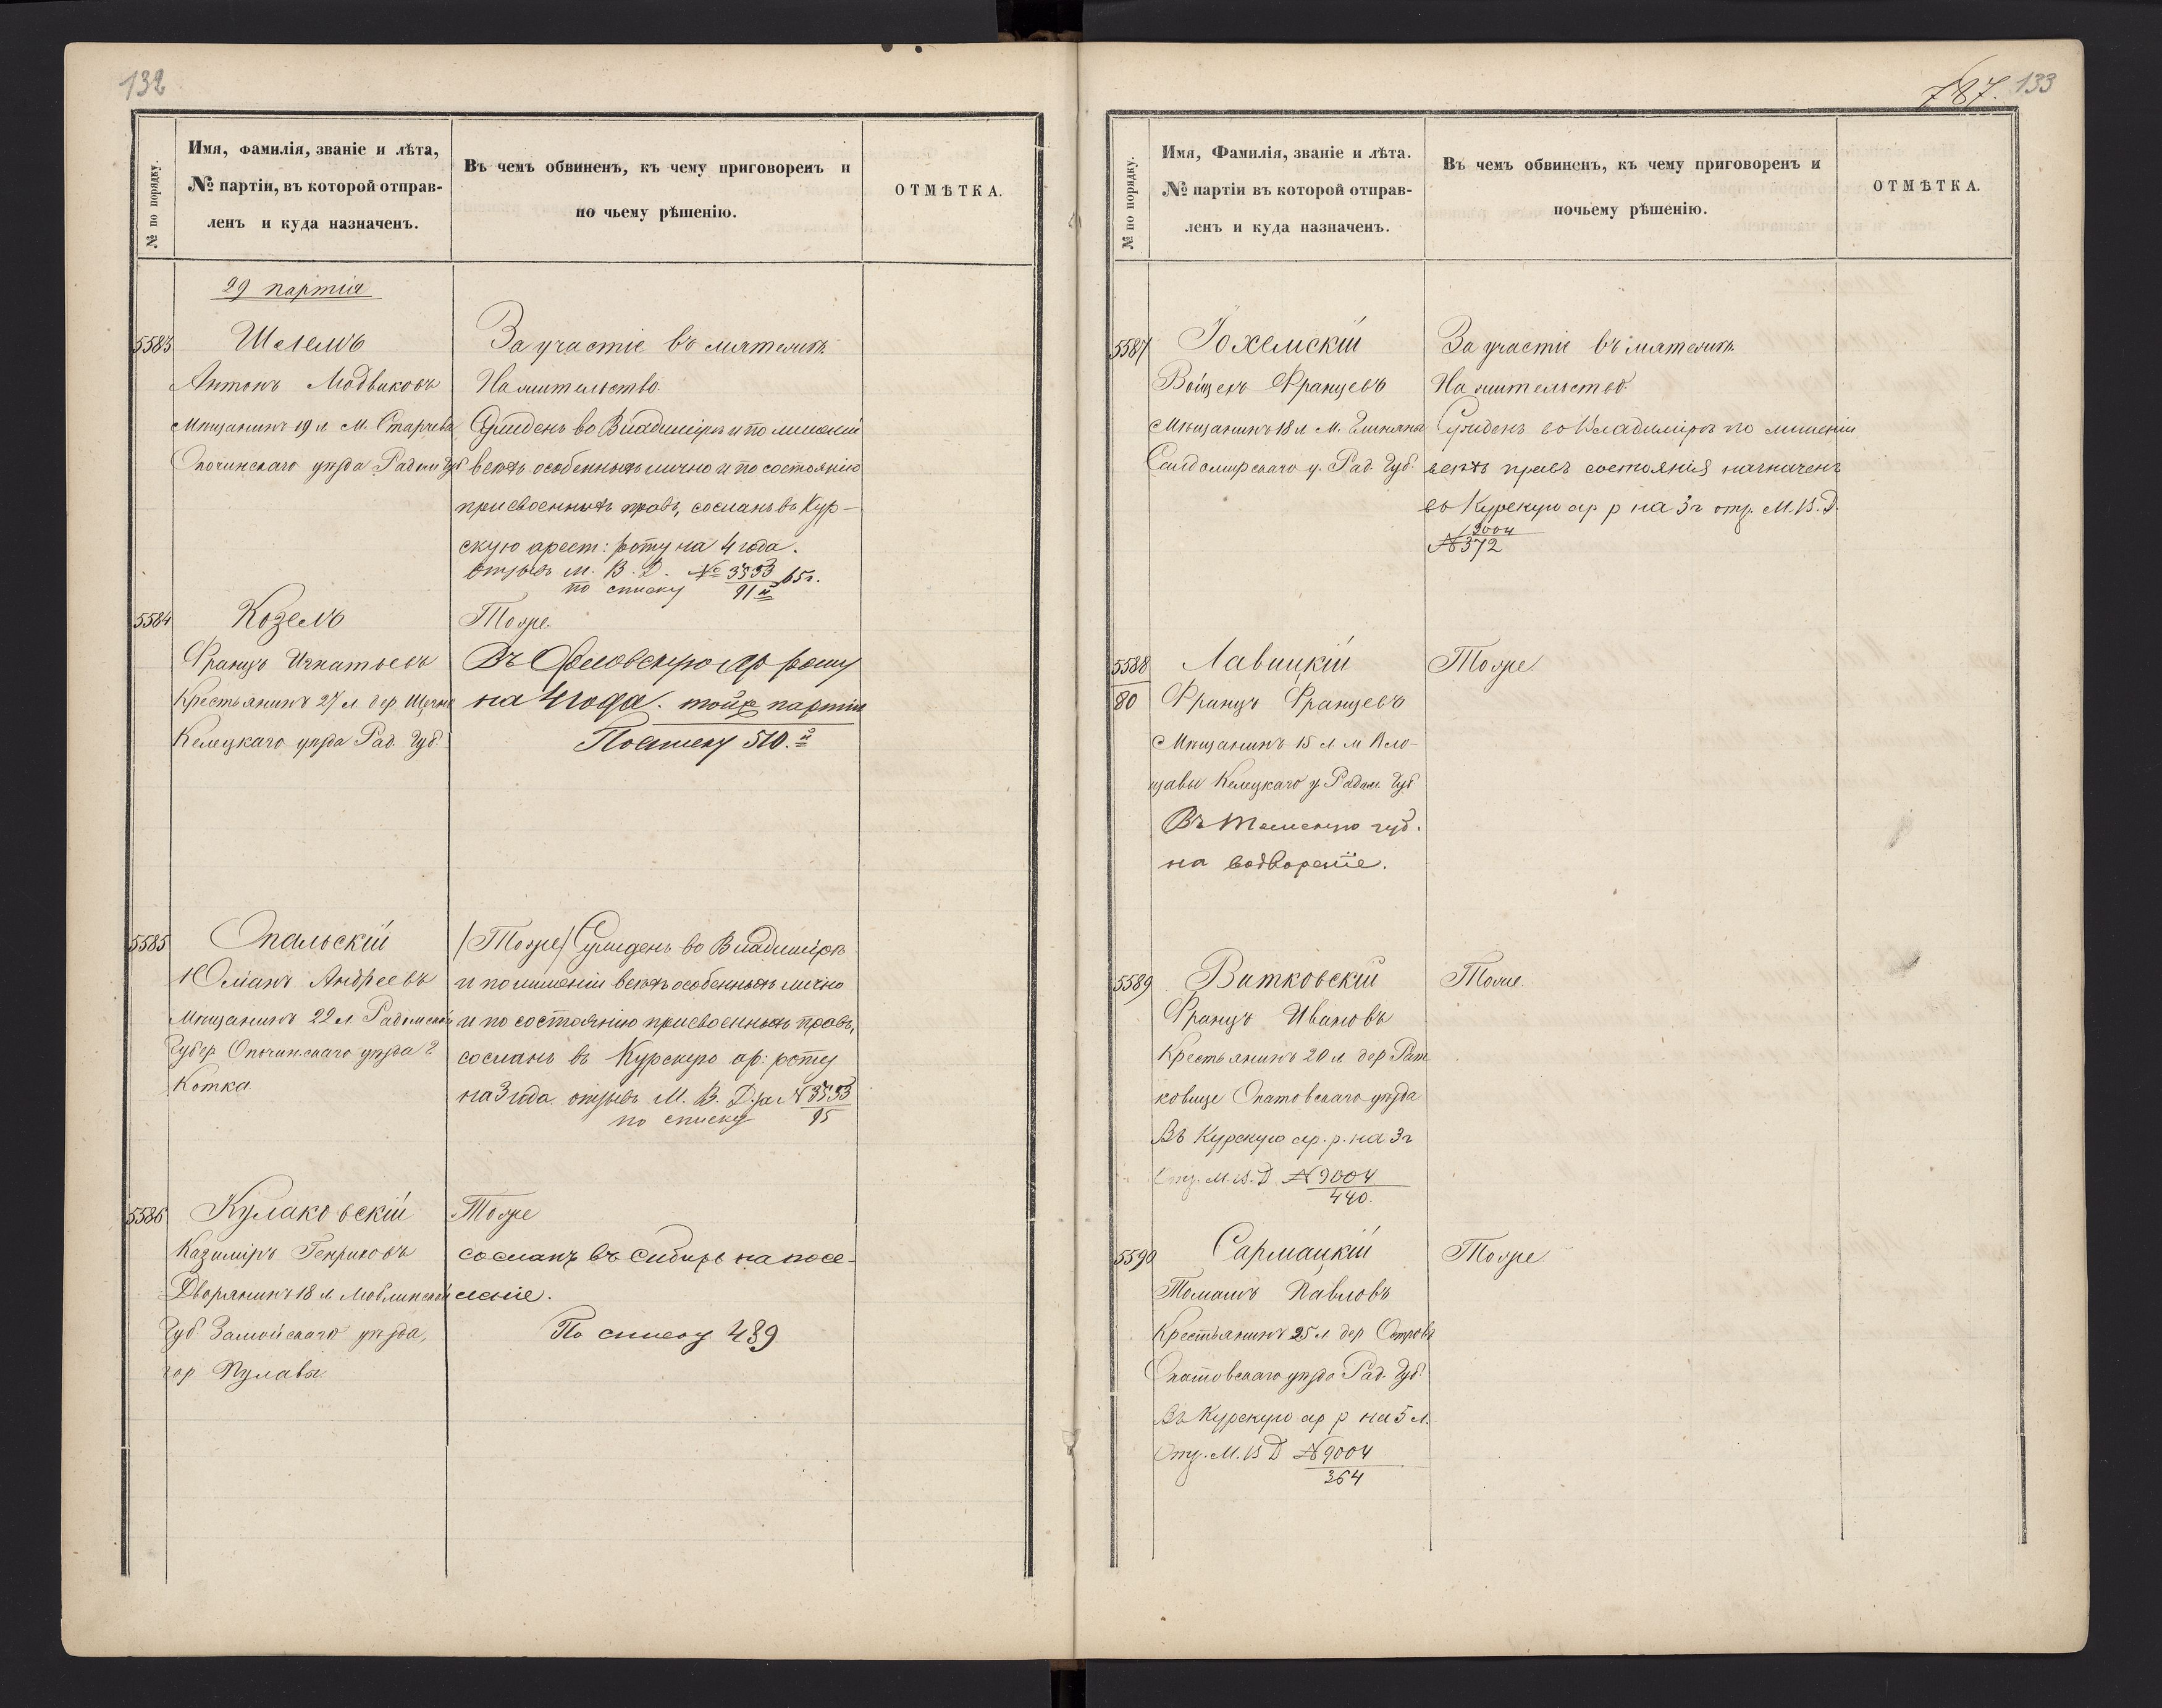 132
№ по порядку.
Имя, Фамилія, званіе и лѣта,
№ партіи, въ которой отправ-
ленъ и куда назначенъ.
Въ чемъ обвиненъ, къ чему приговоренъ и
по чьему рѣшенію.
ОТМѢТКА.
29 партія
5583
Шелемъ
Антонъ
Мѣщанинъ 19 л М.
Опочинскаго уѣзда Радом Губ
За участіе въ мятежѣ.
На жительство.
Сужденъ во Владимірѣ и по лишеніи
всѣхъ особенныхъ лично и по состоянію
присвоенныхъ правъ, сосланъ въ Кур-
скую арест: роту на 4 года.
отзывъ М. В. Д. № 3553 65 г.
по списку 91й
5584
Козелъ
Францъ Игнатьевъ
Крестьянинъ 27 л дер
Келецкаго уѣзда Рад. Губ.
Тоже
Въ Орловскую ар роту
на 4 года. той же партіи
По списку 510.й
5585
Опальскій
Юліанъ Андреевъ
Мѣщанинъ 22 л Радомской
Губер Опочинскаго уѣзда г
Котка
(Тоже) Сужденъ во Владимірѣ
и по лишеніи всѣхъ особенныхъ лично
и по состоянію присвоенныхъ правъ,
сосланъ въ Курскую ар: роту
на 3 года. отзывъ М. В. Д. за № 3553
по списку 95
5586
Кулаковскій
Казиміръ Генриковъ
Дворянинъ 18 л Люблинской
Губ Замойскаго уѣзда,
гор Пулавы
Тоже
сосланъ въ Сибирь на посе-
леніе.
По списку 489
787. 133
№ по порядку.
Имя, Фамилія, званіе и лѣта.
№ партіи въ которой отправ-
ленъ и куда назначенъ.
Въ чемъ обвиненъ, къ чему приговоренъ и
почьему рѣшенію.
ОТМѢТКА.
5587
Іохемскій
Войцехъ Францевъ
Мѣщанинъ 18 л М.
Сандомирскаго у. Рад. Губ.
За участіе въ мятежѣ.
На жительство.
Сужденъ во Владимірѣ по лишеніи
всѣхъ правъ состоянія назначенъ
въ Курскую ар р на 3 г отз. М. В. Д.
№ 9004
372
5588
80
Лавицкій
Францъ Францевъ
Мѣщанинъ 15 л м Вло-
щавы Келецкаго у Радом. Губ
Въ Томскую губ.
на водвореніе.
Тоже
5589
Витковскій
Францъ Ивановъ
Крестьянинъ 20 л дер Рат
ковице Опатовскаго уѣзда
Въ Курскую ар. р. на 3 г
Отз. М. В. Д. № 9004
440.
Тоже
5590
Сармацкій
Томашъ Павловъ
Крестьянинъ 25 л дер Островъ
Опатовскаго уѣзда Рад. Губ
Въ Курскую ар р на 5 л.
Отз. М. В Д № 9004
364
Тоже